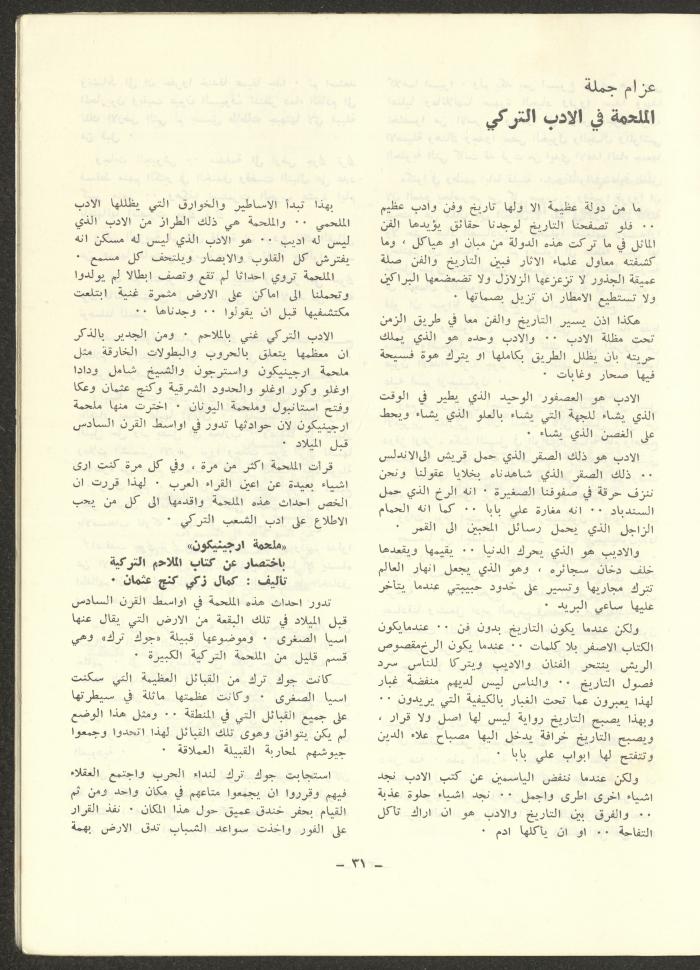 عزام جملة
الملحمة في الادب التركي
ما من دولة عظيمة الا ولها تاريخ وفن وادب عظيم
٠٠ فلو تصفحنا التاريخ لوجدنا حقائق يؤيدها الفن
الماثل في ما تركت هذه الدولة من مبان او هياكل ، وما
كشفته معاول علماء الاثار فبين التاريخ والفن صلة
عميقة الجذور لا تزعزعها الزلازل ولا تضعضعها البراكين
ولا تستطيع الامطار ان تزيل بصماتها ٠
هكذا اذن يسير التاريخ والفن معا في طريق الزمن
تحت مظلة الادب ٠٠ والادب وحده هو الذي يملك
حريته بان يظلل الطريق بكاملها او يترك هوة فسيحة
فيها صحار وغابات ٠
الادب هو العصفور الوحيد الذي يطير في الوقت
الذي يشاء للجهة التي يشاء بالعلو الذي يشاء ويحط
على الغصن الذي يشاء ٠
الادب هو ذلك الصقر الذي حمل قريش الىالاندلس
٠٠ ذلك الصقر الذي شاهدناه بخلايا عقولنا ونحن
ننزف حرقة في صفوفنا الصغيرة ٠ انه الرخ الذي حمل
السندباد ٠٠ انه مغارة علي بابا ٠٠ كما انه الحمام
الزاجل الذي يحمل رسائل المحبين الى القمر ٠
والاديب هو الذي يحرك الدنيا ٠٠ يقيمها ويقعدها
خلف دخان سجائره ، وهو الذي يجعل انهار العالم
تترك مجاريها وتسير على خدود حبيبتي عندما يتأخر
عليها ساعي البريد ٠
ولكن عندما يكون التاريخ بدون فن ٠٠ عندمايكون
الكتاب الاصفر بلا كلمات ٠٠ عندما يكون الرخمقصوص
الريش ينتحر الفنان والاديب ويتركا للناس سرد
فصول التاريخ ٠٠ والناس ليس لديهم منفضة غبار
لهذا يعبرون عما تحت الغبار بالكيفية التي يريدون ٠٠
وبهذا يصبح التاريخ رواية ليس لها اصل ولا قرار ،
ويصبح التاريخ خرافة يدخل اليها مصباح علاء الدين
وتتفتح لها ابواب علي بابا ٠
ولكن عندما ننفض الياسمين عن كتب الادب نجد
اشياء اخرى اطرى واجمل ٠٠ نجد اشياء حلوة عذبة
٠٠ والفرق بين التاريخ والادب هو ان اراك تأكل
التفاحة ٠٠ او ان يأكلها ادم ٠
بهذا تبدأ الاساطير والخوارق التي يظللها الادب
الملحمي ٠٠ والملحمة هي ذلك الطراز من الادب الذي
ليس له اديب ٠٠ هو الادب الذي ليس له مسكن انه
يفترش كل القلوب والابصار ويلتحف كل مسمع ٠
الملحمة تروي احداثا لم تقع وتصف ابطالا لم يولدوا
وتحملنا الى اماكن على الارض مثمرة غنية ابتلعت
مكتشفيها قبل ان يقولوا ٠٠ وجدناها ٠٠
الادب التركي غني بالملاحم ٠ ومن الجدير بالذكر
ان معظمها يتعلق بالحروب والبطولات الخارقة مثل
ملحمة ارجينيكون واسترجون والشيخ شامل ودادا
اوغلو وكور اوغلو والحدود الشرقية وكنج عثمان وعكا
وفتح استانبول وملحمة اليونان ٠ اخترت منها ملحمة
ارجينيكون لان حوادثها تدور في اواسط القرن السادس
قبل الميلاد ٠
قرأت الملحمة اكثر من مرة ، وفي كل مرة كنت ارى
اشياء بعيدة عن اعين القراء العرب ٠ لهذا قررت ان
الخص احداث هذه الملحمة واقدمها الى كل من يحب
الاطلاع على ادب الشعب التركي ٠
«ملحمة ارجينيكون»
باختصار عن كتاب الملاحم التركية
تاليف : كمال زكي كنج عثمان ٠
تدور احداث هذه الملحمة في اواسط القرن السادس
قبل الميلاد في تلك البقعة من الارض التي يقال عنها
اسيا الصغرى ٠ وموضوعها قبيلة «جوك ترك» وهي
قسم قليل من الملحمة التركية الكبيرة ٠
كانت جوك ترك من القبائل العظيمة التي سكنت
اسيا الصغرى ٠ وكانت عظمتها ماثلة في سيطرتها
على جميع القبائل التي في المنطقة ٠٠ ومثل هذا الوضع
لم يكن يتوافق وهوى تلك القبائل لهذا اتحدوا وجمعوا
جيوشهم لمحاربة القبيلة العملاقة ٠
استجابت جوك ترك لنداء الحرب واجتمع العقلاء
فيهم وقرروا ان يجمعوا متاعهم في مكان واحد ومن ثم
القيام بحفر خندق عميق حول هذا المكان ٠ نفذ القرار
على الفور واخذت سواعد الشباب تدق الارض بهمة
- ٣١ -